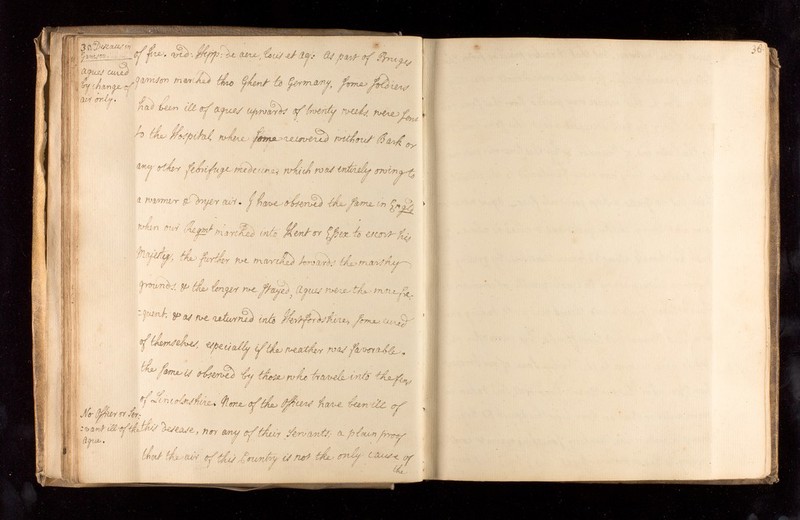 30 Diseases in
agues cured
by change of
air only.
of fire. vid: Hipp: de aere, locis et aq: As part of Bruges
garrison marched thro Ghent to Germany. Some soldiers
had been ill of agues upwards of twenty weeks were sent
to the Hospital, where some recovered without Bark or
any other febrifuge medecine, which was entirely owing to
a warmer & dryer air. I have observed the same in Engld
when our Regmt marched into Kent or Essex to escort his
Majesty, the further we marched towards the marshy
grounds, & the longer we stayed, agues were the more fre-
:quent, & as we returned into Hertfordshire, some cured
of themselves, especially if the weather was favorable.
the same is observed by those who travele into the fens
of Lincolnshire. None of the Officers have been ill of
No Officer or Ser:
:vant ill of the
ague.
this Disease, nor any of their Servants; a plain proof
that the air of this Country is not the only cause of
the
36